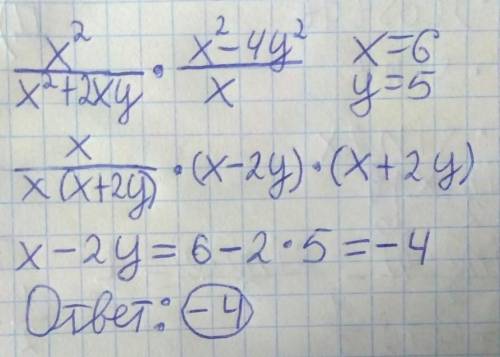 x²/(x²+2xy) · (x²-4y²)/x x=6
y=5
x/(x(x+2y)) · (x-2y) · (x+2y)
x-2y=6-2·5=-4
Ответ: -4